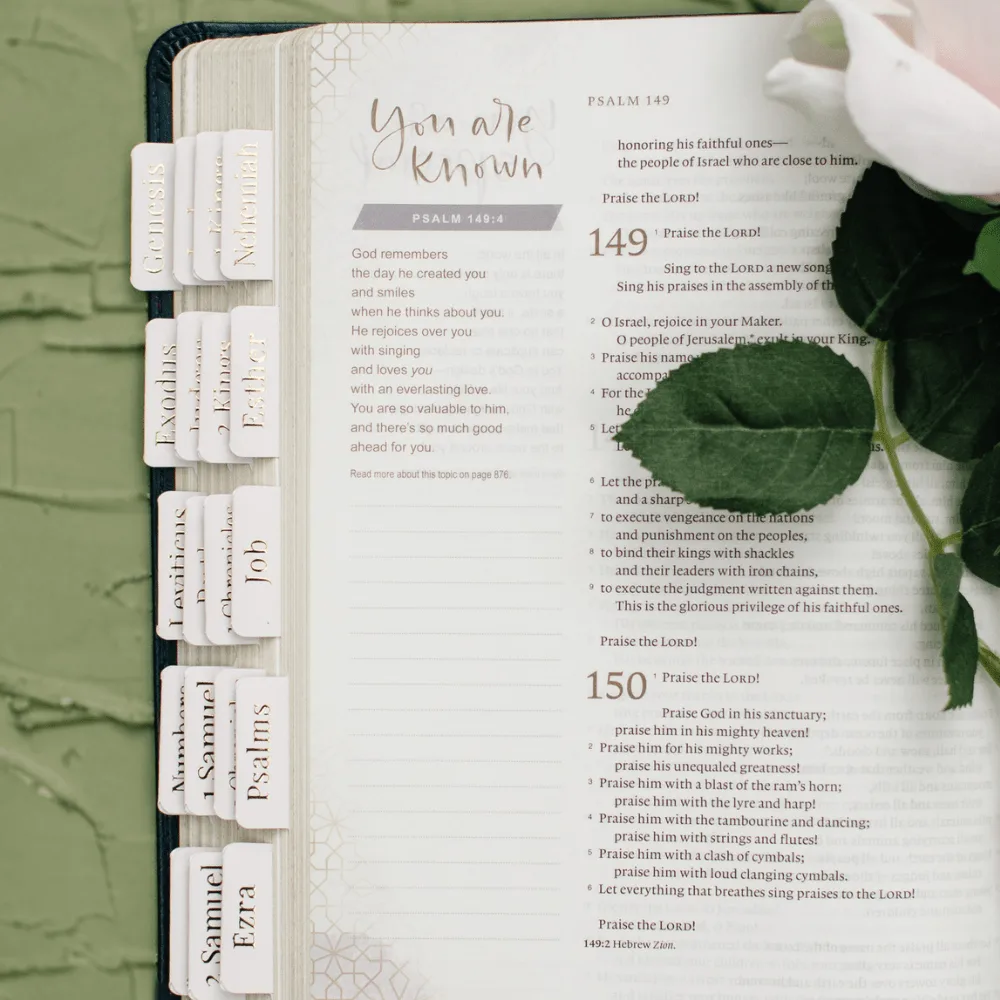 Genesis
Kings
Nehemiah
Exodus
2 Kings
Esther
Leviticus
1 Chronicles
Job
Numbers
1 Samuel
Psalms
2 Samuel
Ezra
You are
known
PSALM 149:4
God remembers
the day he created you
and smiles
when he thinks about you.
He rejoices over you
with singing
and loves you
with an everlasting love.
You are so valuable to him,
and there's so much good
ahead for you.
Read more about this topic on page 876.
PSALM 149
honoring his faithful ones—
the people of Israel who are close to him.
Praise the LORD!
149 1 Praise the LORD!
Sing to the LORD a new song
Sing his praises in the assembly of
2 O Israel, rejoice in your Maker.
O people of Jerusalem,* exult in your King.
3 Praise his name
4 For the
he
5 Let
6 Let the
and a sharp
7 to execute vengeance on the nations
and punishment on the peoples,
8 to bind their kings with shackles
and their leaders with iron chains,
9 to execute the judgment written against them.
This is the glorious privilege of his faithful ones.
Praise the LORD!
150 1 Praise the LORD!
Praise God in his sanctuary;
praise him in his mighty heaven!
2 Praise him for his mighty works;
praise his unequaled greatness!
3 Praise him with a blast of the ram's horn;
praise him with the lyre and harp!
4 Praise him with the tambourine and dancing;
praise him with strings and flutes!
5 Praise him with a clash of cymbals;
praise him with loud clanging cymbals.
6 Let everything that breathes sing praises to the LORD!
Praise the LORD!
149:2 Hebrew Zion.